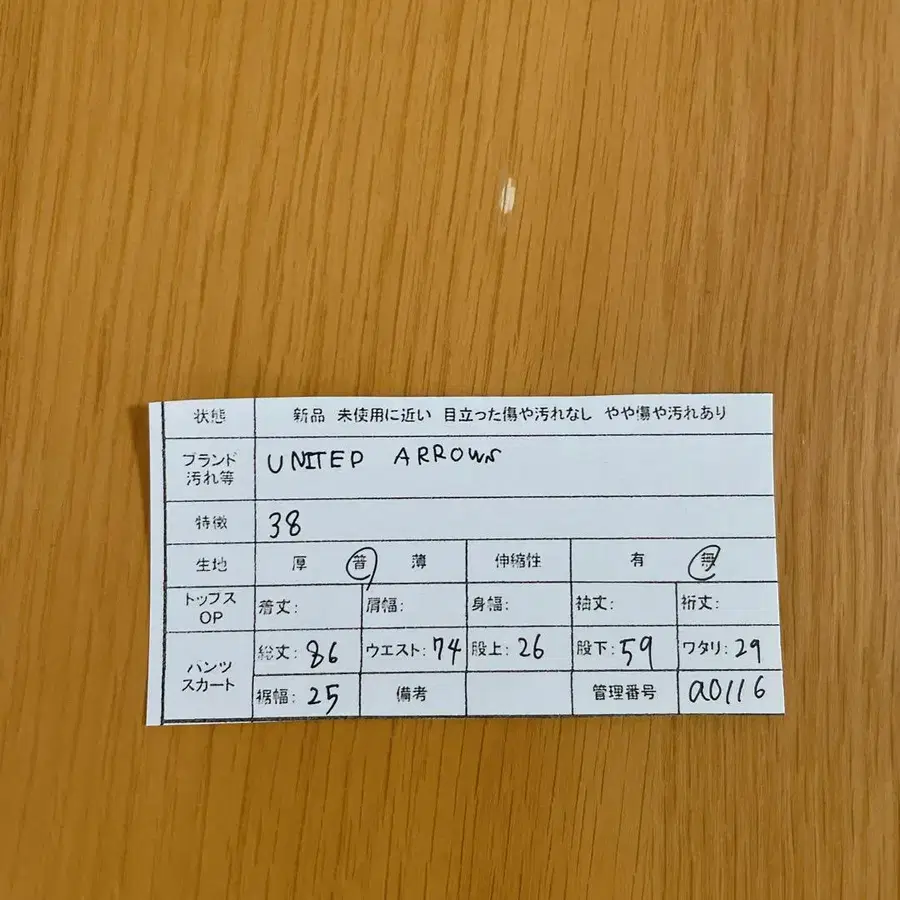 状態 新品 未使用に近い 目立った傷や汚れなし やや傷や汚れあり
ブランド
汚れ等 UNITED ARROWS
特徴 38
生地 厚 普 薄 伸縮性 有 無
トップス
OP 着丈: 肩幅: 身幅: 袖丈: 裄丈:
パンツ
スカート 総丈: 86 ウエスト: 74 股上: 26 股下: 59 ワタリ: 29
裾幅: 25 備考 管理番号 a0116